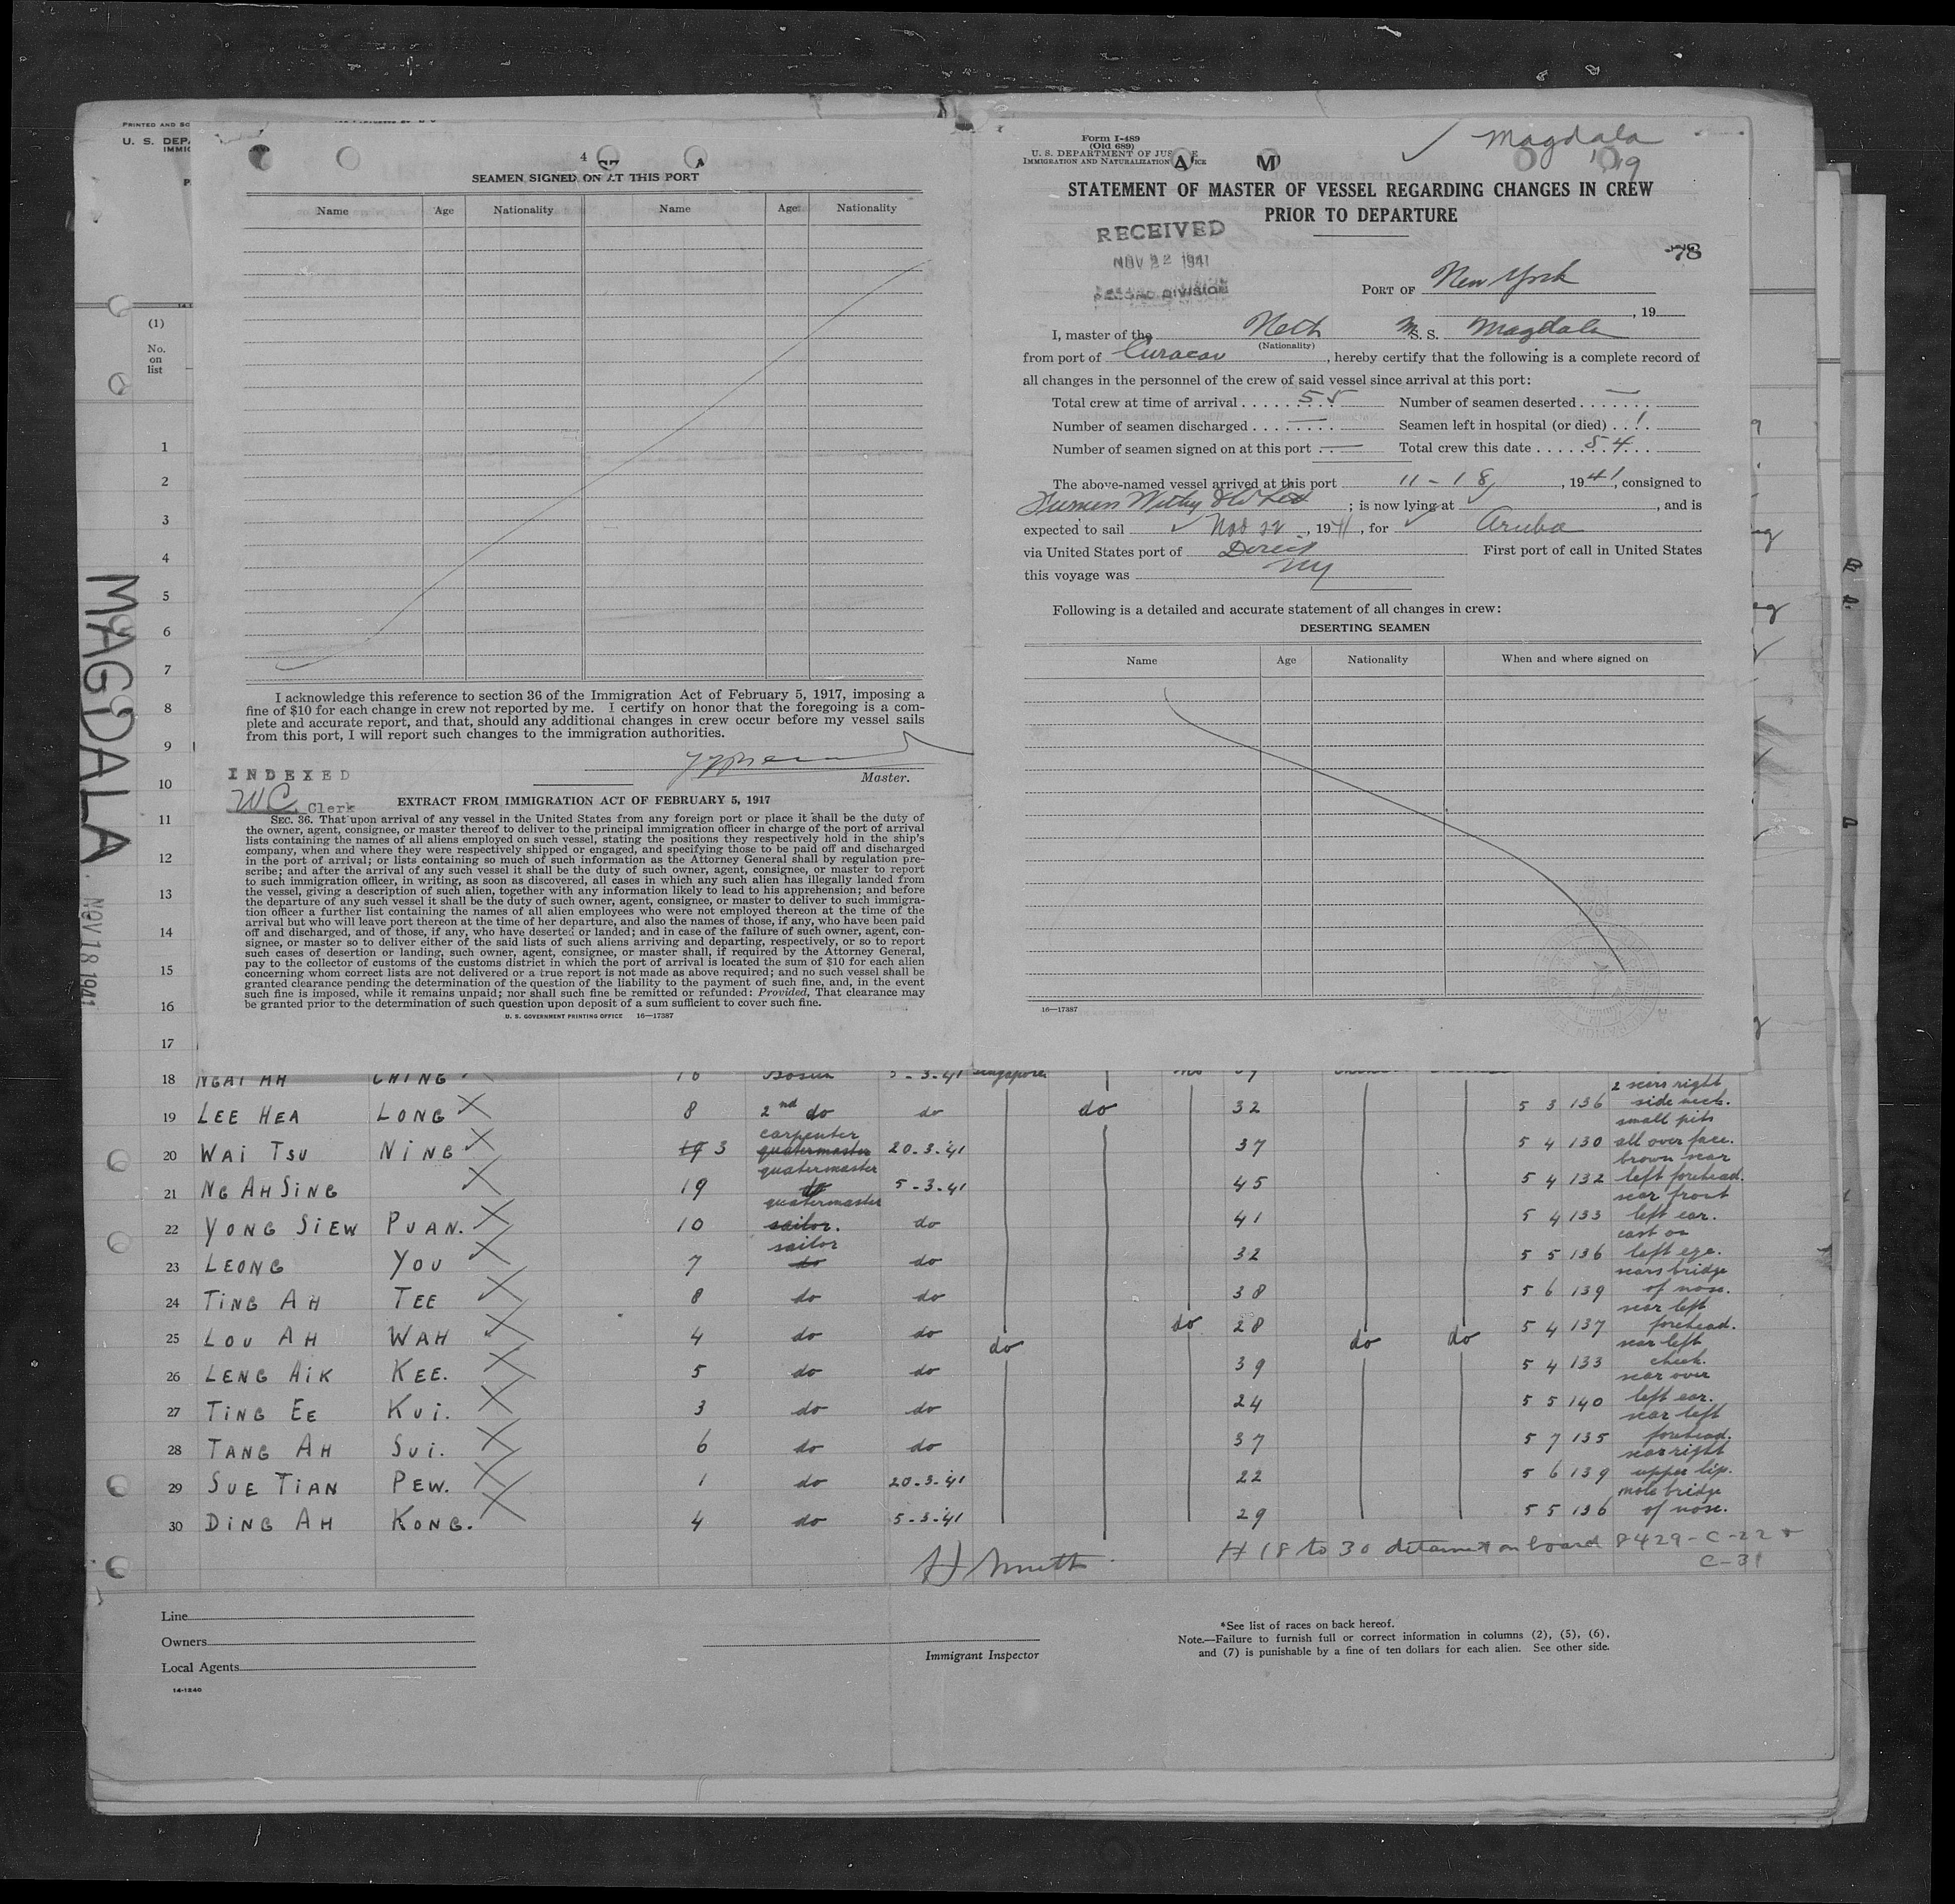 PRINTED AND SO
U. S. DEPA
IMMIG
P
(1)
No.
on
list
1
2
3
4
5
6
7
8
9
10
11
12
13
14
15
16
17
MAGDALA
NOV 18 1941
4
SEAMEN SIGNED ON AT THIS PORT
Name Age Nationality Name Age Nationality
I acknowledge this reference to section 36 of the Immigration Act of February 5, 1917, imposing a
fine of $10 for each change in crew not reported by me. I certify on honor that the foregoing is a com-
plete and accurate report, and that, should any additional changes in crew occur before my vessel sails
from this port, I will report such changes to the immigration authorities.
Master.
INDEXED
WC Clerk
EXTRACT FROM IMMIGRATION ACT OF FEBRUARY 5, 1917
SEC. 36. That upon arrival of any vessel in the United States from any foreign port or place it shall be the duty of
the owner, agent, consignee, or master thereof to deliver to the principal immigration officer in charge of the port of arrival
lists containing the names of all aliens employed on such vessel, stating the positions they respectively hold in the ship's
company, when and where they were respectively shipped or engaged, and specifying those to be paid off and discharged
in the port of arrival; or lists containing so much of such information as the Attorney General shall by regulation pre-
scribe; and after the arrival of any such vessel it shall be the duty of such owner, agent, consignee, or master to report
to such immigration officer, in writing, as soon as discovered, all cases in which any such alien has illegally landed from
the vessel, giving a description of such alien, together with any information likely to lead to his apprehension; and before
the departure of any such vessel it shall be the duty of such owner, agent, consignee, or master to deliver to such immigra-
tion officer a further list containing the names of all alien employees who were not employed thereon at the time of the
arrival but who will leave port thereon at the time of her departure, and also the names of those, if any, who have been paid
off and discharged, and of those, if any, who have deserted or landed; and in case of the failure of such owner, agent, con-
signee, or master so to deliver either of the said lists of such aliens arriving and departing, respectively, or so to report
such cases of desertion or landing, such owner, agent, consignee, or master shall, if required by the Attorney General,
pay to the collector of customs of the customs district in which the port of arrival is located the sum of $10 for each alien
concerning whom correct lists are not delivered or a true report is not made as above required; and no such vessel shall be
granted clearance pending the determination of the question of the liability to the payment of such fine, and, in the event
such fine is imposed, while it remains unpaid; nor shall such fine be remitted or refunded: Provided, That clearance may
be granted prior to the determination of such question upon deposit of a sum sufficient to cover such fine.
U. S. GOVERNMENT PRINTING OFFICE 16—17387
Form I-489
(Old 689)
U. S. DEPARTMENT OF JUSTICE
IMMIGRATION AND NATURALIZATION SERVICE
Magdala
STATEMENT OF MASTER OF VESSEL REGARDING CHANGES IN CREW
PRIOR TO DEPARTURE
RECEIVED
NOV 22 1941
RECORD DIVISION
78
PORT OF New York
, 19
I, master of the Neth M S. S. Magdala
(Nationality)
from port of Curacao, hereby certify that the following is a complete record of
all changes in the personnel of the crew of said vessel since arrival at this port:
Total crew at time of arrival 55 Number of seamen deserted —
Number of seamen discharged — Seamen left in hospital (or died) 1
Number of seamen signed on at this port — Total crew this date 54
The above-named vessel arrived at this port 11-18, 1941, consigned to
Furness Withy & Co Ltd ; is now lying at , and is
expected to sail Nov 22, 1941, for Aruba
via United States port of Direct First port of call in United States
this voyage was NY
Following is a detailed and accurate statement of all changes in crew:
DESERTING SEAMEN
Name Age Nationality When and where signed on
16—17387
18 NGAI AH CHING 16 Bosun 5-3-41 Singapore
19 LEE HEA LONG 8 2nd do do do 32 5 3 136 2 scars right side neck.
20 WAI TSU NING 19 3 carpenter quatermaster 20.3.'41 37 5 4 130 small pits all over face.
21 NG AH SING 19 quatermaster do 5-3-41 45 5 4 132 brown scar left forehead.
22 YONG SIEW PUAN. 10 quatermaster sailor. do 41 5 4 133 scar front left ear.
23 LEONG YOU 7 sailor do do 32 5 5 136 cast on left eye.
24 TING AH TEE 8 do do 38 5 6 139 scars bridge of nose.
25 LOU AH WAH 4 do do do do 28 do do 5 4 137 scar left forehead.
26 LENG AIK KEE. 5 do do 39 5 4 133 scar left cheek.
27 TING EE KUI. 3 do do 24 5 5 140 scar over left ear.
28 TANG AH SUI. 6 do do 37 5 7 135 scar left forehead.
29 SUE TIAN PEW. 1 do 20-3-'41 22 5 6 139 scar right upper lip.
30 DING AH KONG. 4 do 5-3-'41 29 5 5 136 mole bridge of nose.
# 18 to 30 detained on board 8429-C-22 &
C-31
Line
Owners
Local Agents
14-1240
Immigrant Inspector
*See list of races on back hereof.
Note.—Failure to furnish full or correct information in columns (2), (5), (6),
and (7) is punishable by a fine of ten dollars for each alien. See other side.